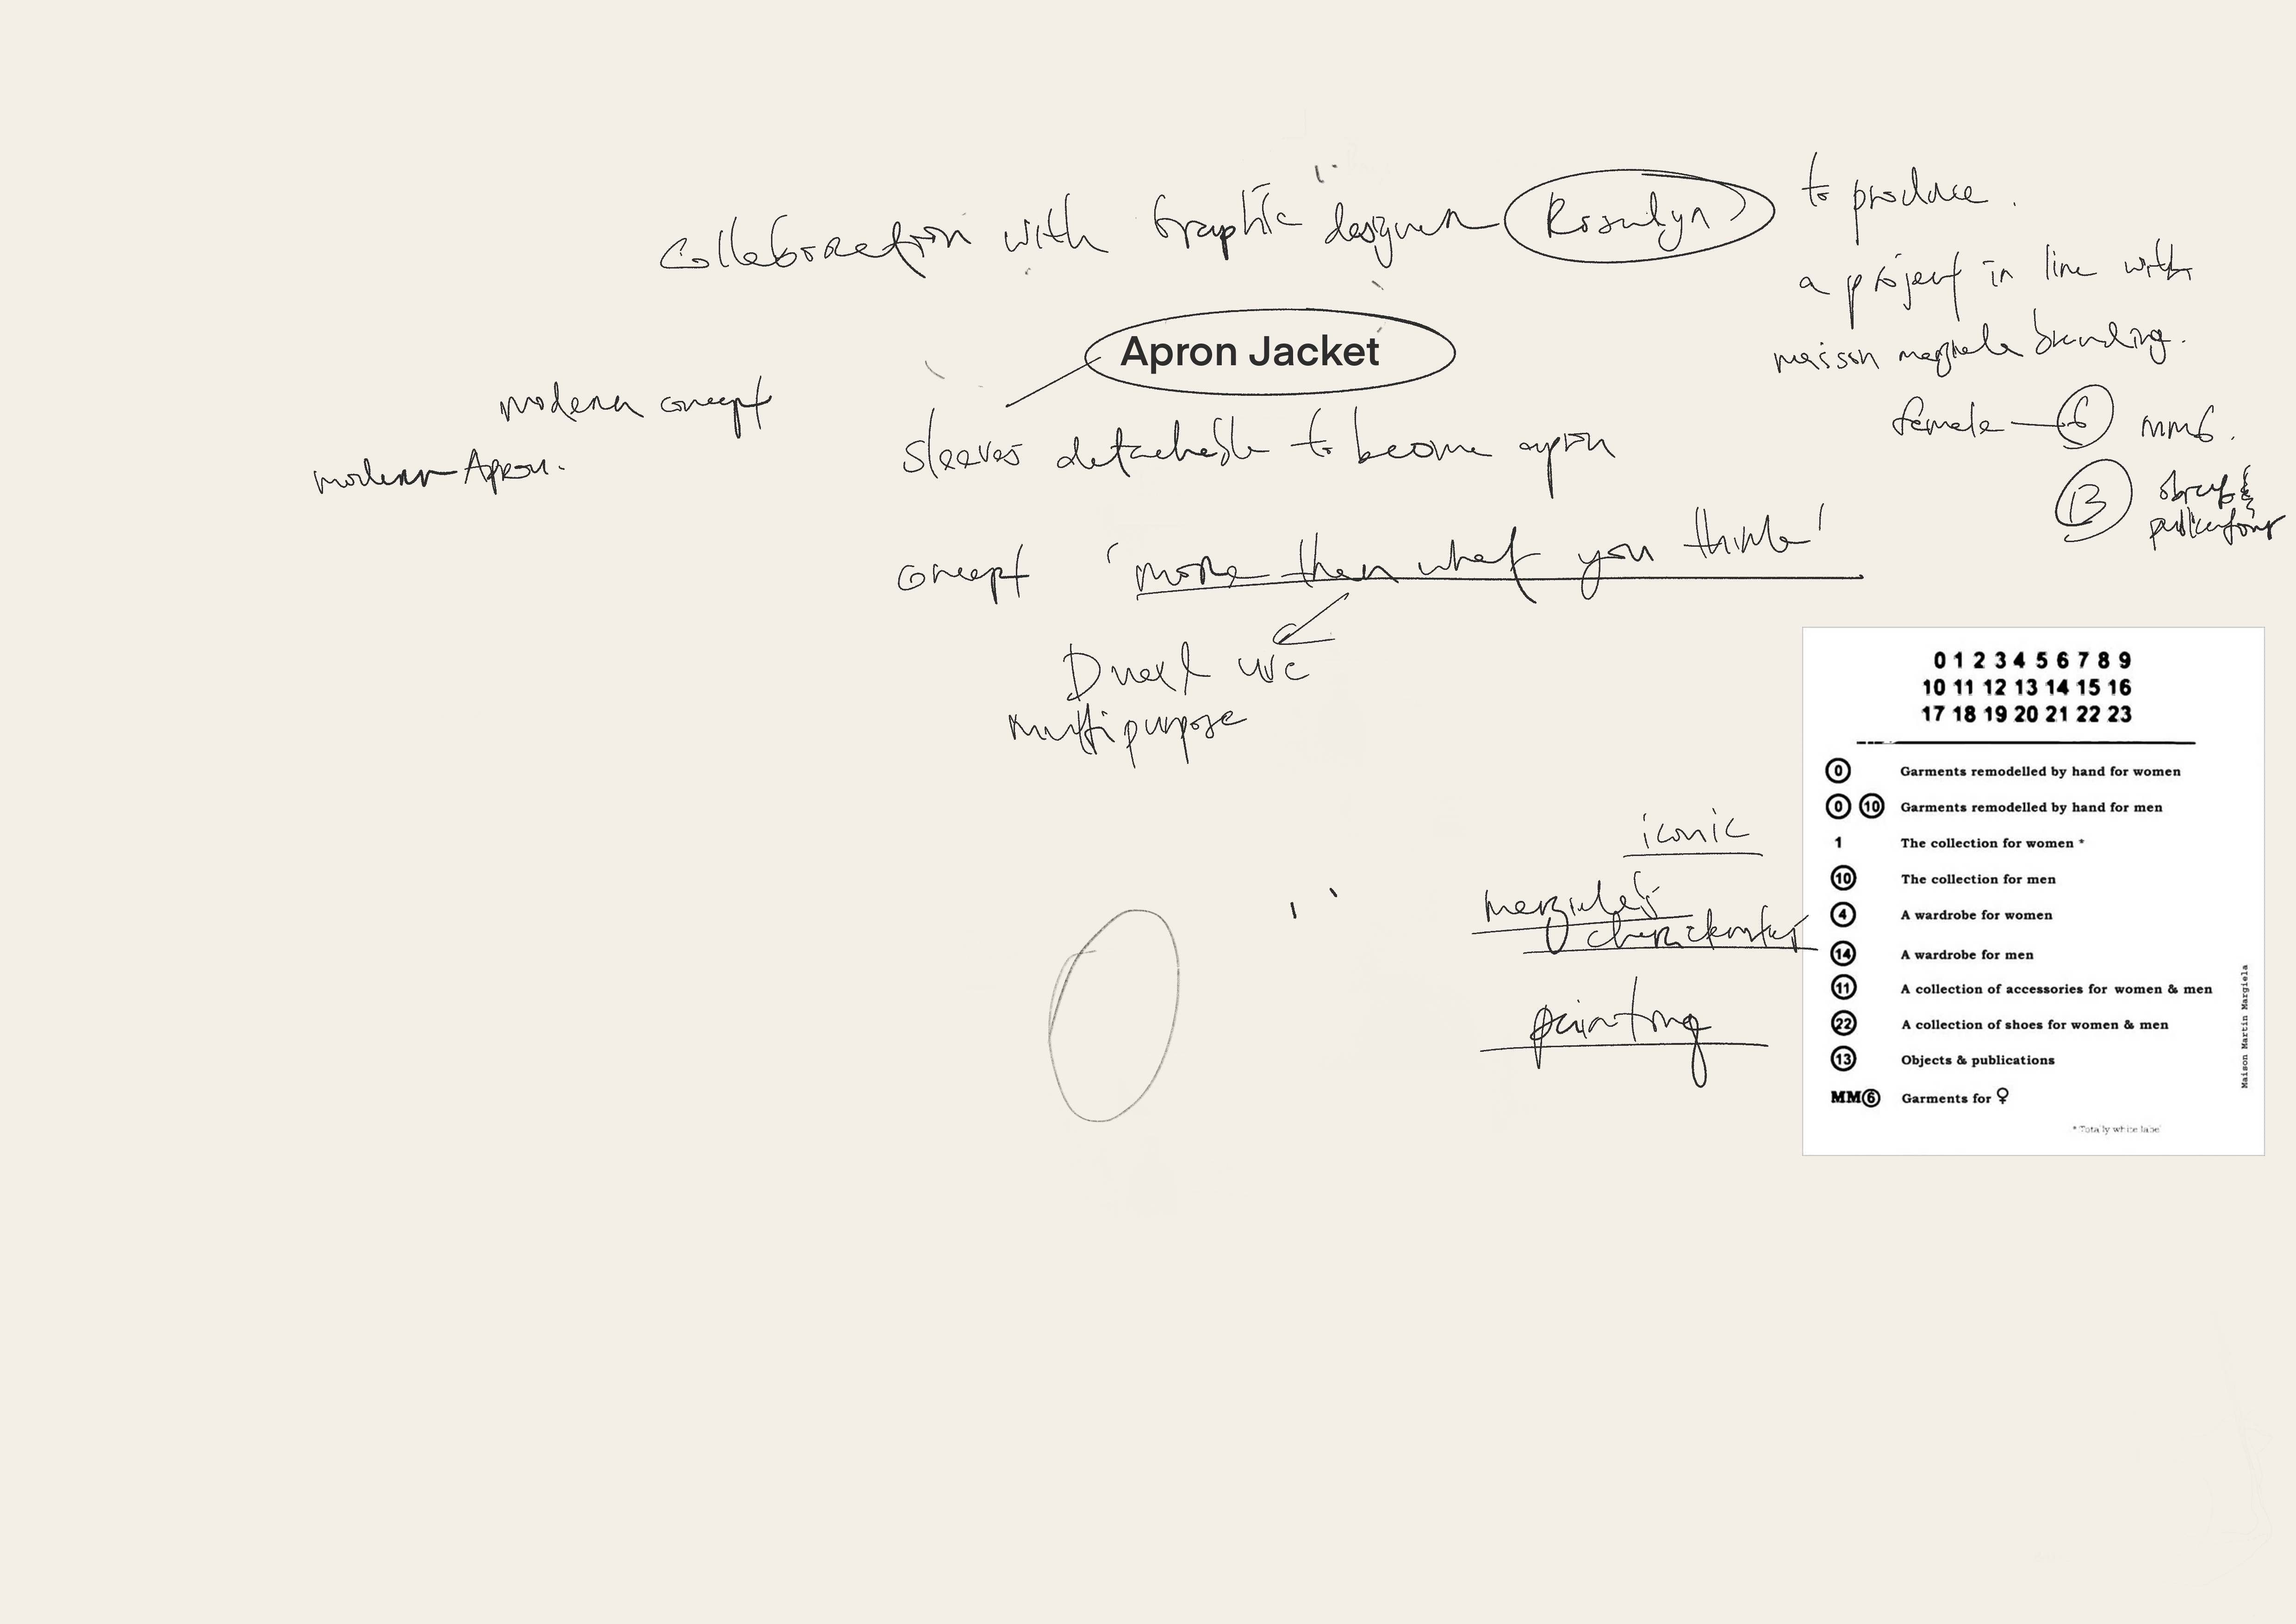 Collaboration with Graphic designer Rosalyn to produce.
a project in line with
maison margiela branding.
Apron Jacket
modern concept
female — 6 MM6.
sleeves detachable to become apron
modern Apron.
13 objects &
publications
concept 'more than what you think'
Dual use
multipurpose
0 1 2 3 4 5 6 7 8 9
10 11 12 13 14 15 16
17 18 19 20 21 22 23
0 Garments remodelled by hand for women
0 10 Garments remodelled by hand for men
1 The collection for women *
10 The collection for men
4 A wardrobe for women
14 A wardrobe for men
11 A collection of accessories for women & men
22 A collection of shoes for women & men
13 Objects & publications
MM6 Garments for ♀
* Totally white label
Maison Martin Margiela
iconic
margiela's
painting